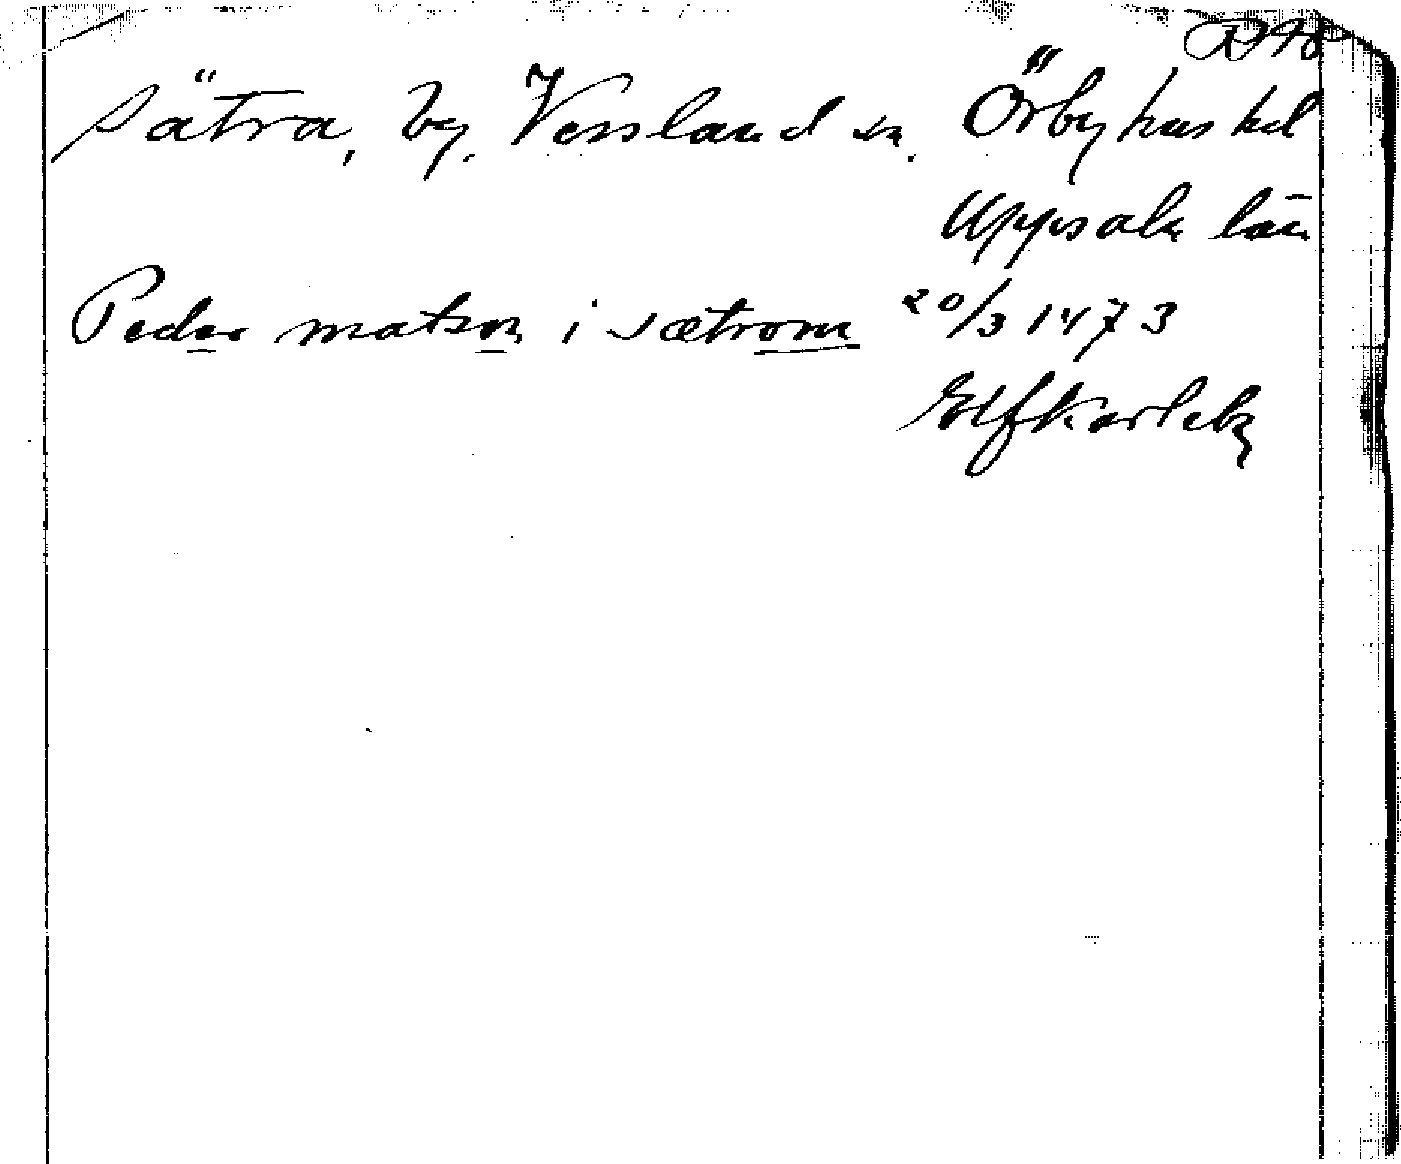 Sätra, by. Vessland sn. Örbyhus hd
Uppsala län
Peder matson i sætrom 20/3 1473
Elfkarleby